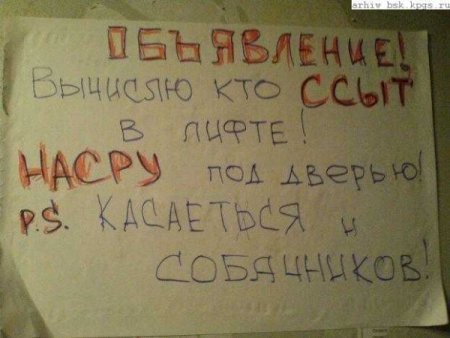 arhiv bsk.kpgs.ru
ОБЪЯВЛЕНИЕ!
Вычислю кто ССЫТ
в лифте!
НАСРУ под дверью!
P.S. КАСАЕТЬСЯ и
СОБАЧНИКОВ!